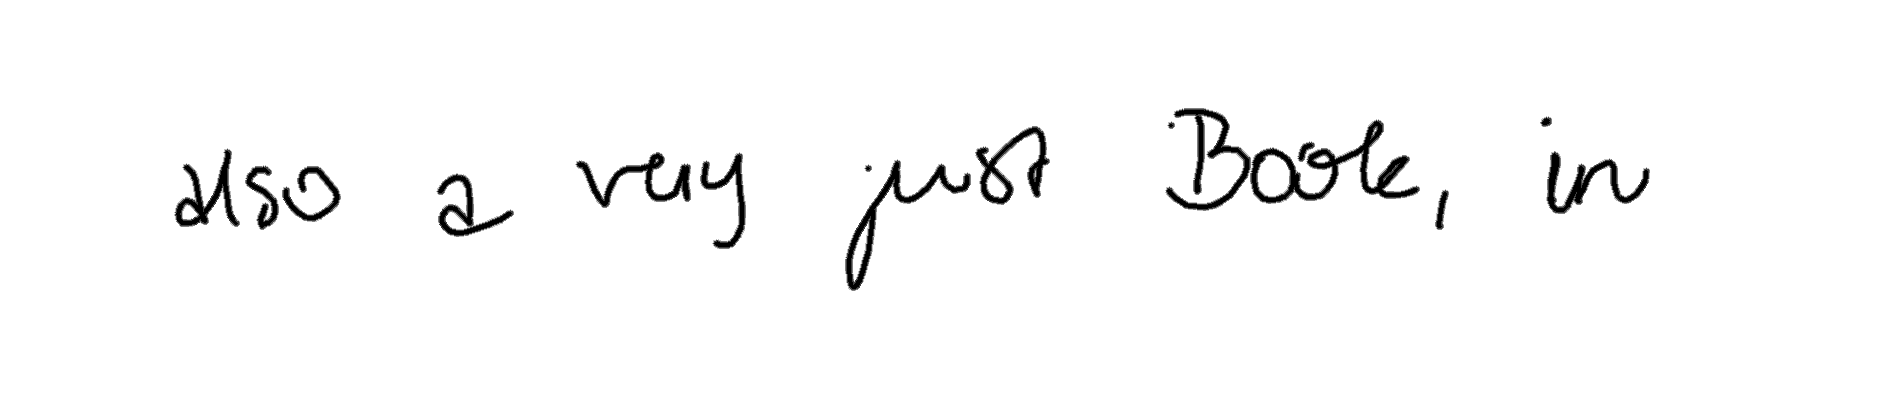 also a very just Book, in